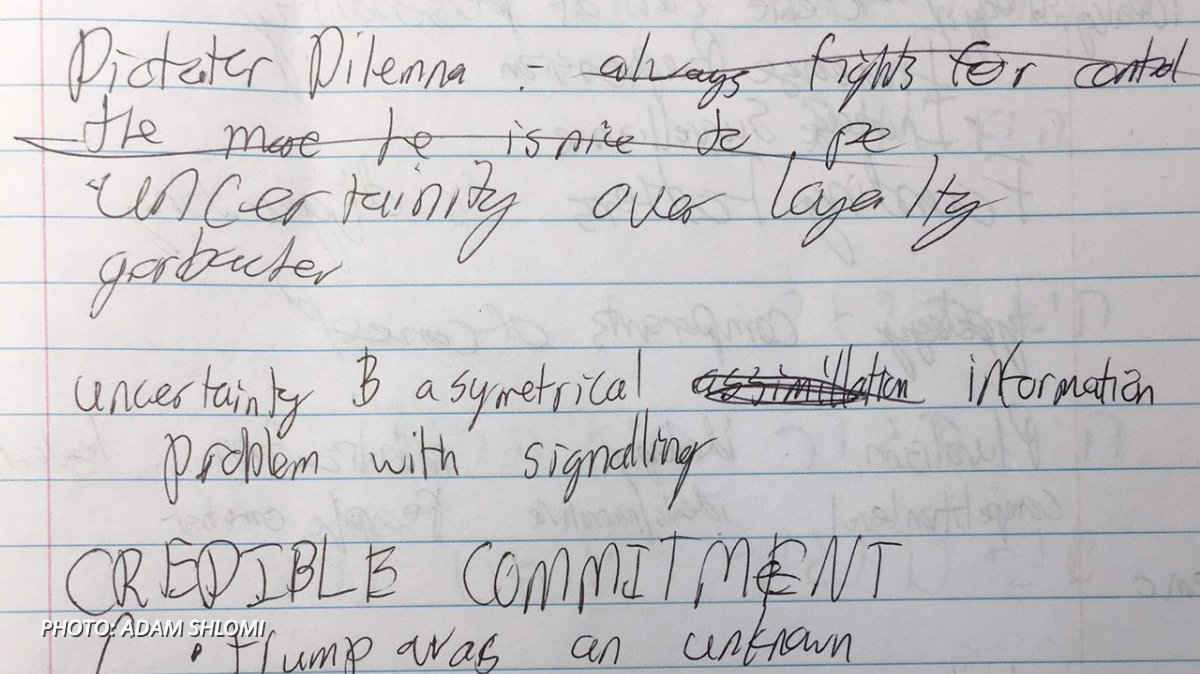 Dictater Dilemna - always fights for control
the more he is nice to pe
uncertainity over loyalty
gorbacter
uncertainty B asymetrical assimillation information
problem with signalling
CREDIBLE COMMITMENT
PHOTO: ADAM SHLOMI
• trump was an unknown